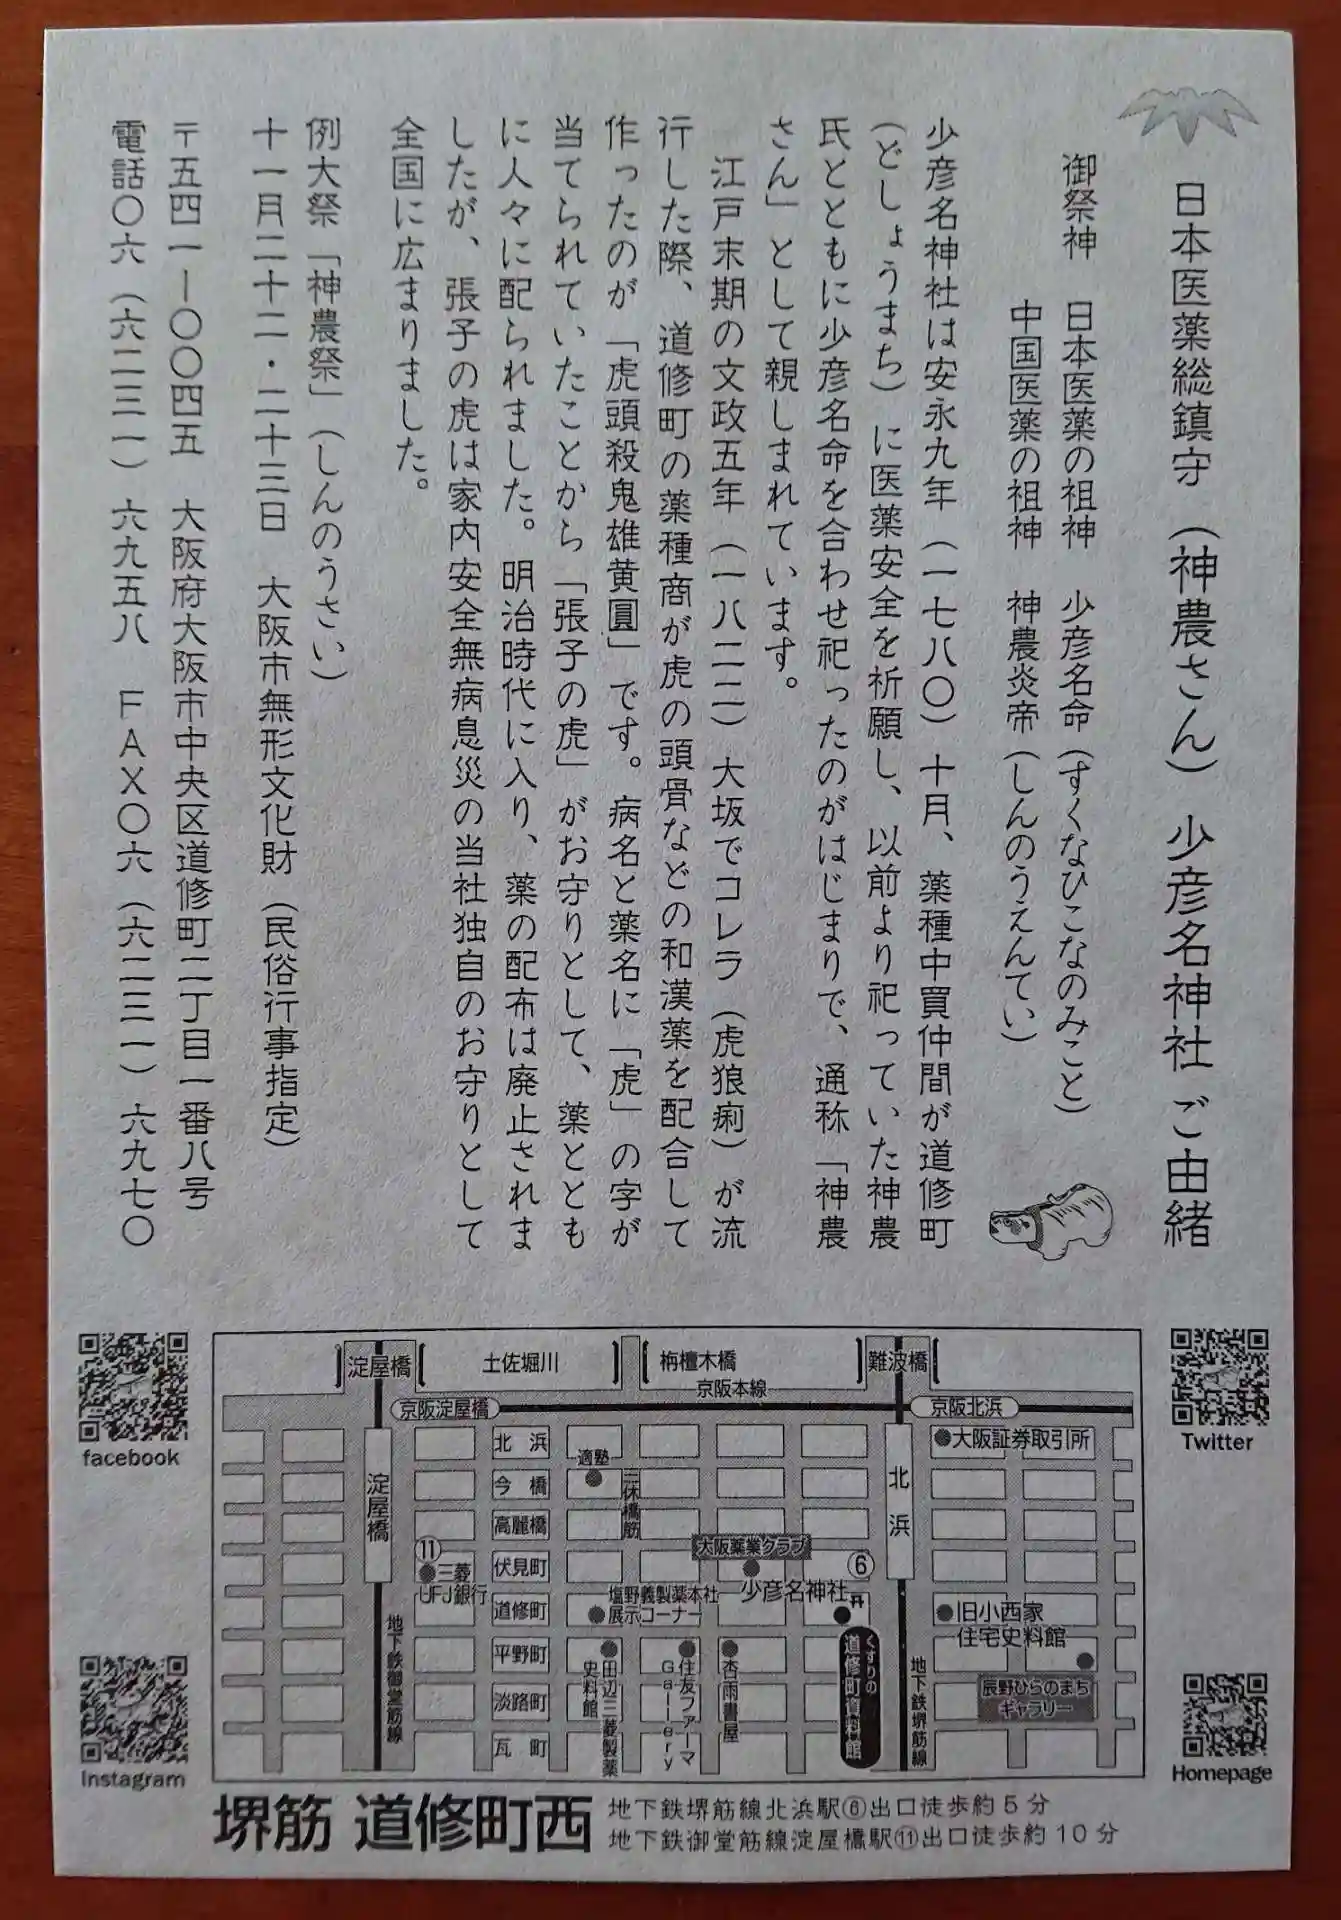 日本医薬総鎮守（神農さん）少彦名神社 ご由緒
御祭神 日本医薬の祖神 少彦名命（すくなひこなのみこと）
中国医薬の祖神 神農炎帝（しんのうえんてい）
少彦名神社は安永九年（一七八〇）十月、薬種中買仲間が道修町
（どしょうまち）に医薬安全を祈願し、以前より祀っていた神農
氏とともに少彦名命を合わせ祀ったのがはじまりで、通称「神農
さん」として親しまれています。
江戸末期の文政五年（一八二二）大坂でコレラ（虎狼痢）が流
行した際、道修町の薬種商が虎の頭骨などの和漢薬を配合して
作ったのが「虎頭殺鬼雄黄圓」です。病名と薬名に「虎」の字が
当てられていたことから「張子の虎」がお守りとして、薬ととも
に人々に配られました。明治時代に入り、薬の配布は廃止されま
したが、張子の虎は家内安全無病息災の当社独自のお守りとして
全国に広まりました。
例大祭「神農祭」（しんのうさい）
十一月二十二・二十三日 大阪市無形文化財（民俗行事指定）
〒五四一ー〇〇四五 大阪府大阪市中央区道修町二丁目一番八号
電話〇六（六二三一）六九五八 FAX〇六（六二三一）六九七〇
facebook
Instagram
Twitter
Homepage
淀屋橋
土佐堀川
栴檀木橋
難波橋
京阪本線
京阪淀屋橋
京阪北浜
北浜
今橋
高麗橋
伏見町
道修町
平野町
淡路町
瓦町
適塾
三休橋筋
大阪証券取引所
淀屋橋
北浜
⑪
三菱
UFJ銀行
大阪薬業クラブ
⑥
少彦名神社
塩野義製薬本社
展示コーナー
旧小西家
住宅史料館
地下鉄御堂筋線
田辺三菱製薬
史料館
住友ファーマ
Gallery
杏雨書屋
くすりの
道修町資料館
地下鉄堺筋線
辰野ひらのまち
ギャラリー
堺筋 道修町西
地下鉄堺筋線北浜駅⑥出口徒歩約5分
地下鉄御堂筋線淀屋橋駅⑪出口徒歩約10分